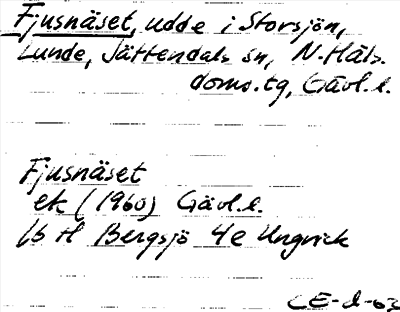 Fjusnäset, udde i Storsjön,
Lunde, Jättendals sn, N. Häls.
doms.tg, Gävl.l.
Fjusnäset
ek (1960) Gävl.l.
16 H Bergsjö 4e Ungvick
CE-d-63